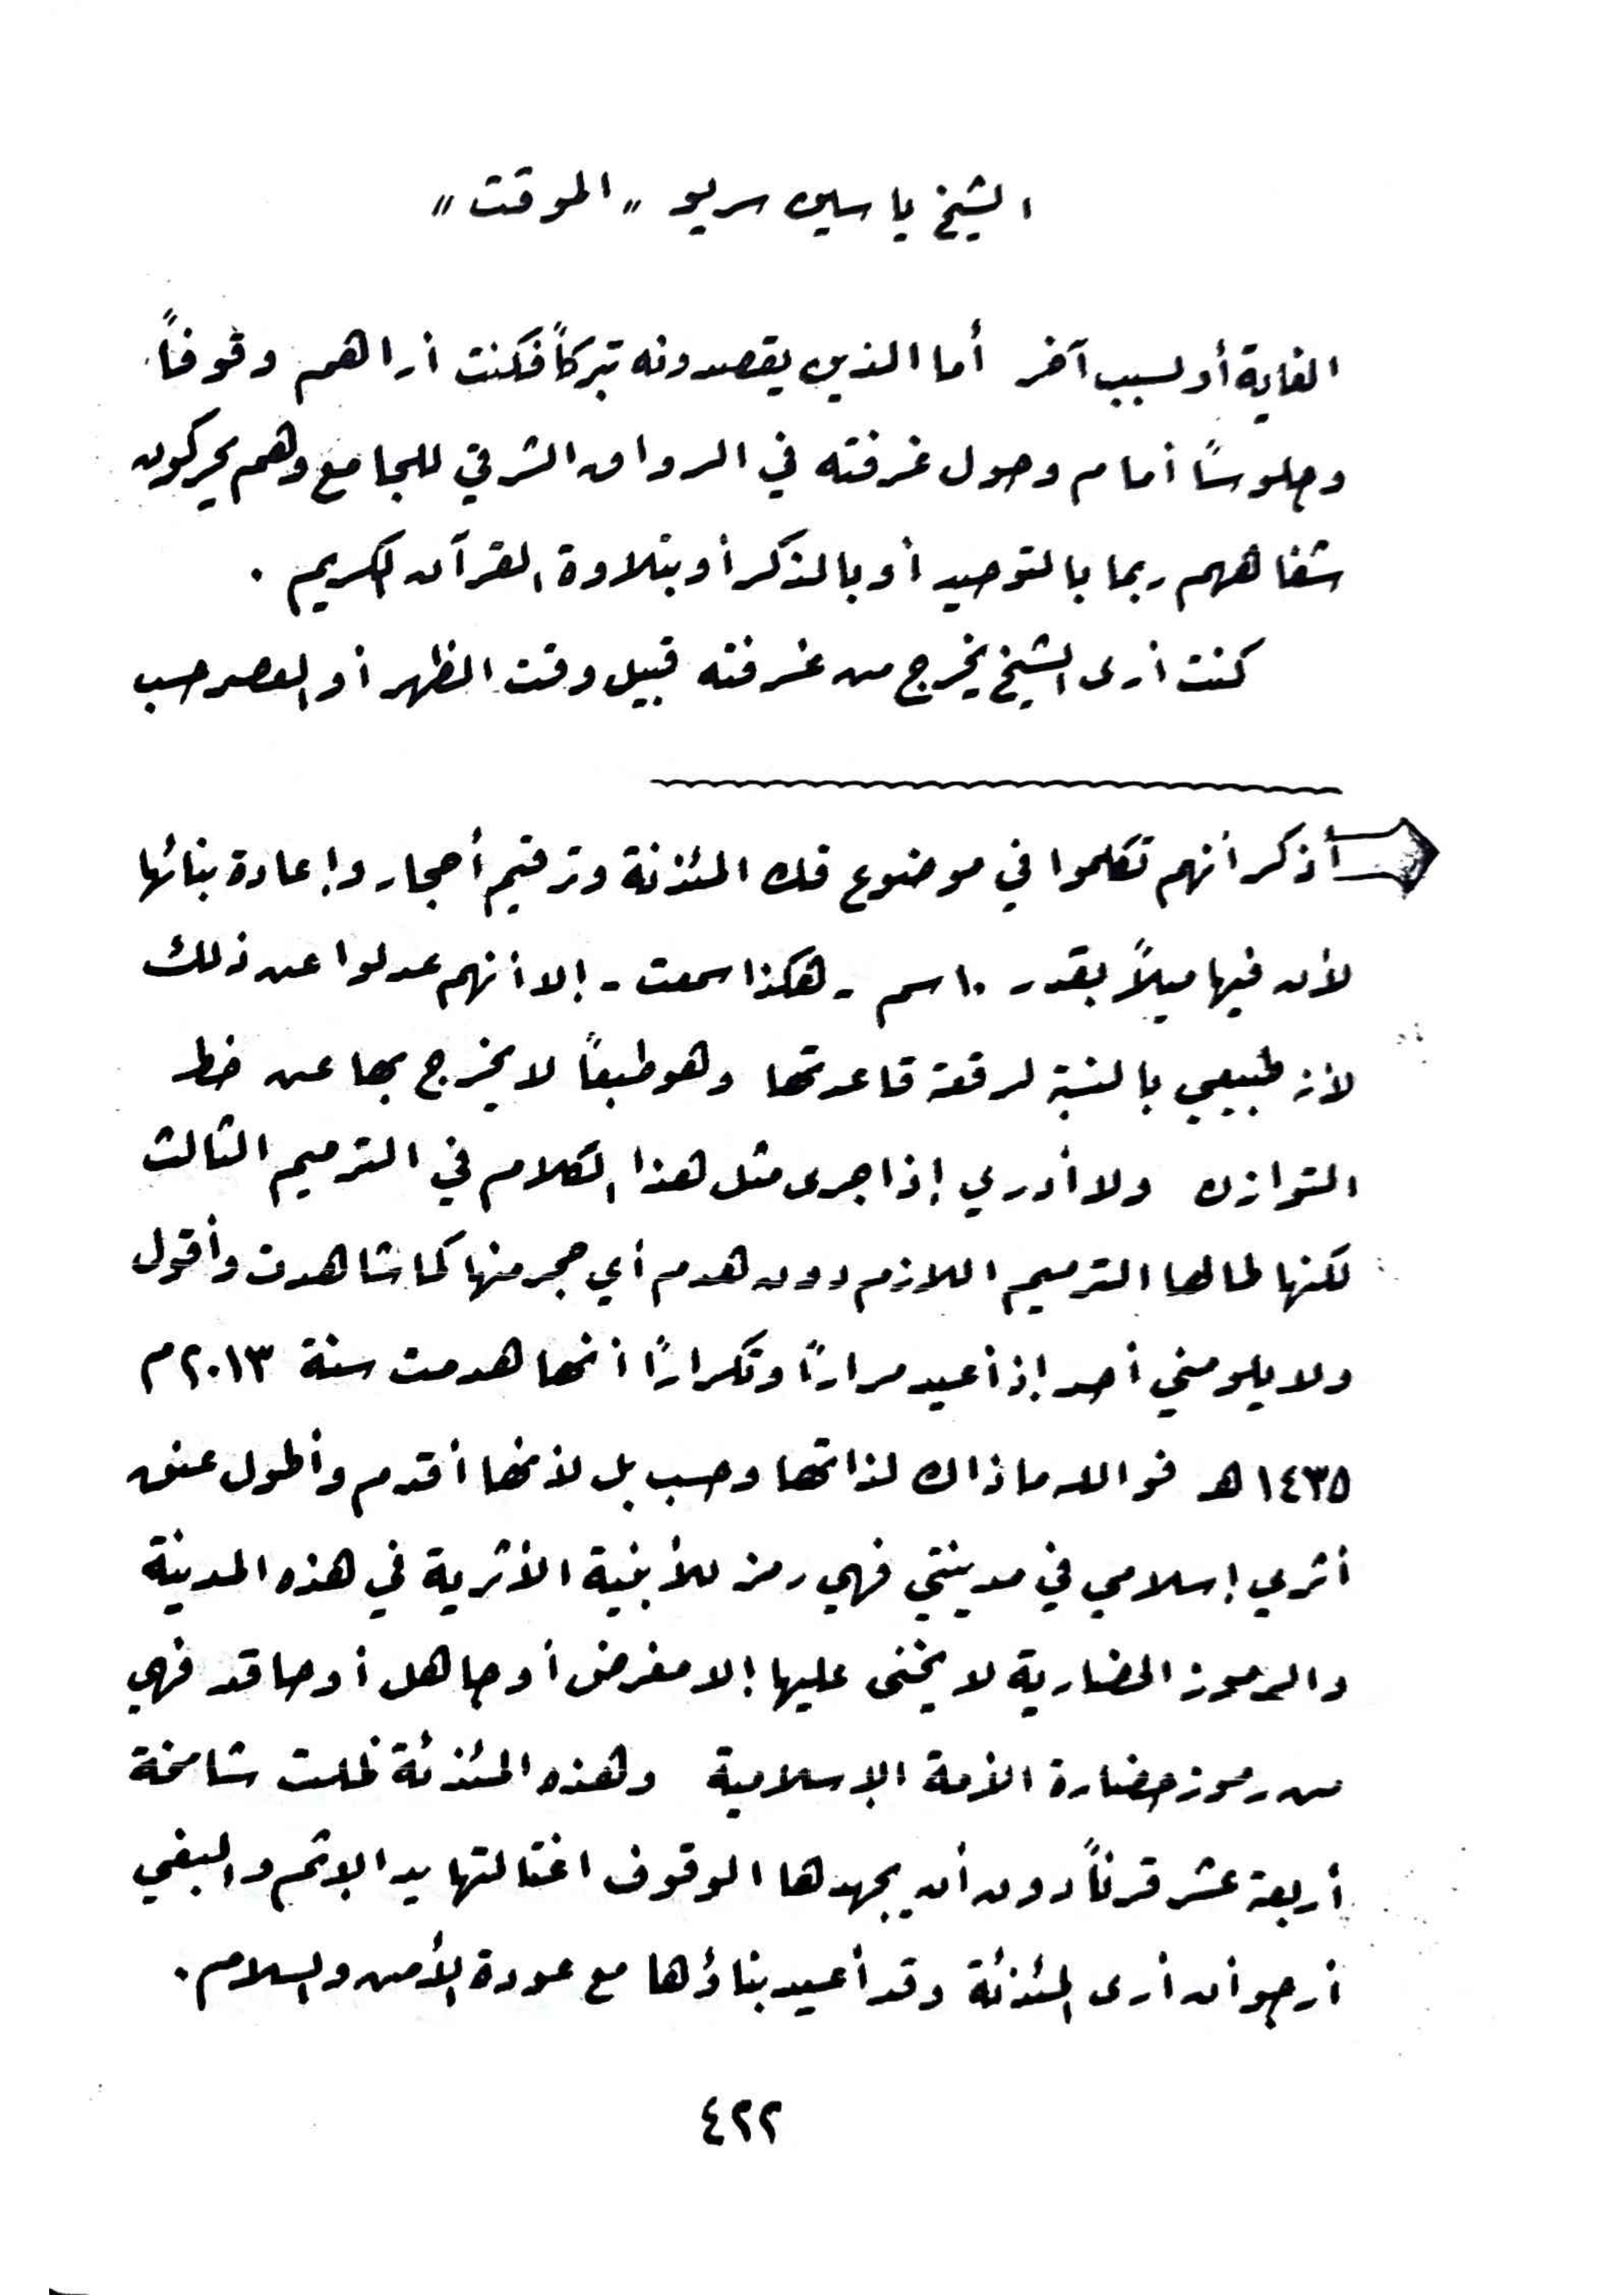 الشيخ ياسين سريو "الموقت"
الغاية أو لسبب آخر أما الذين يقصدونه تبركاً فكنت أراهم وقوفاً
وجلوساً أمام وحول غرفته في الرواق الشرقي للجامع وهم يحركون
شفاههم ربما بالتوحيد أو بالذكر أو بتلاوة القرآن الكريم .
كنت أرى الشيخ يخرج من غرفته قبيل وقت الظهر أو العصر حسب
أذكر أنهم تكلموا في موضوع فك المئذنة وترقيم أحجار وإعادة بنائها
لأن فيها ميلاً بقدر ١٠ سم - هكذا سمعت - إلا أنهم عدلوا عن ذلك
لأنه طبيعي بالنسبة لرقعة قاعدتها وهو طبعاً لا يخرج بها عن خط
التوازن ولا أدري إذا جرى مثل هذا الكلام في الترميم الثالث
لكنها طالها الترميم اللازم دون هدم أي حجر منها كما شاهدت وأقول
ولا يلومني أحد إذ أعيد مراراً وتكراراً أنها هدمت سنة ٢٠١٣م
١٤٣٥هـ فوالله ما ذاك لذاتها وحسب بل لأنها أقدم وأطول عنق
أثري إسلامي في مدينتي فهي رمز للأبنية الأثرية في هذه المدينة
والرموز الحضارية لا يخنى عليها إلا مغرض أو جاهل أو حاقد فهي
من رموز حضارة الأمة الإسلامية وهذه المئذنة ظلت شامخة
أربعة عشر قرناً دون أن يجهدها الوقوف اغتالتها يد الإثم والبغي
أرجو أن أرى المئذنة وقد أعيد بناؤها مع عودة الأمن والسلام .
٤٢٢